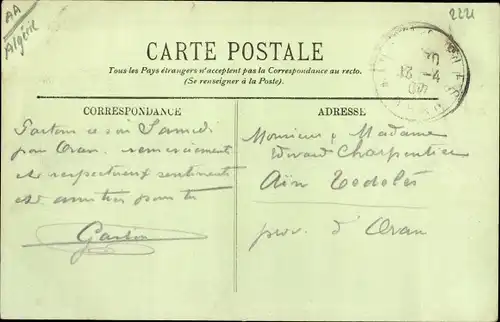 AA
Algérie
2221
CARTE POSTALE
Tous les Pays étrangers n'acceptent pas la Correspondance au recto.
(Se renseigner à la Poste).
CORRESPONDANCE
ADRESSE
Partons ce soir Samedi
pour Oran. remerciements
et respectueux sentiments
et amitiés pour tt
Gaston
Monsieur & Madame
Edouard Charpentier
Aïn Tedelès
prov. d'Oran